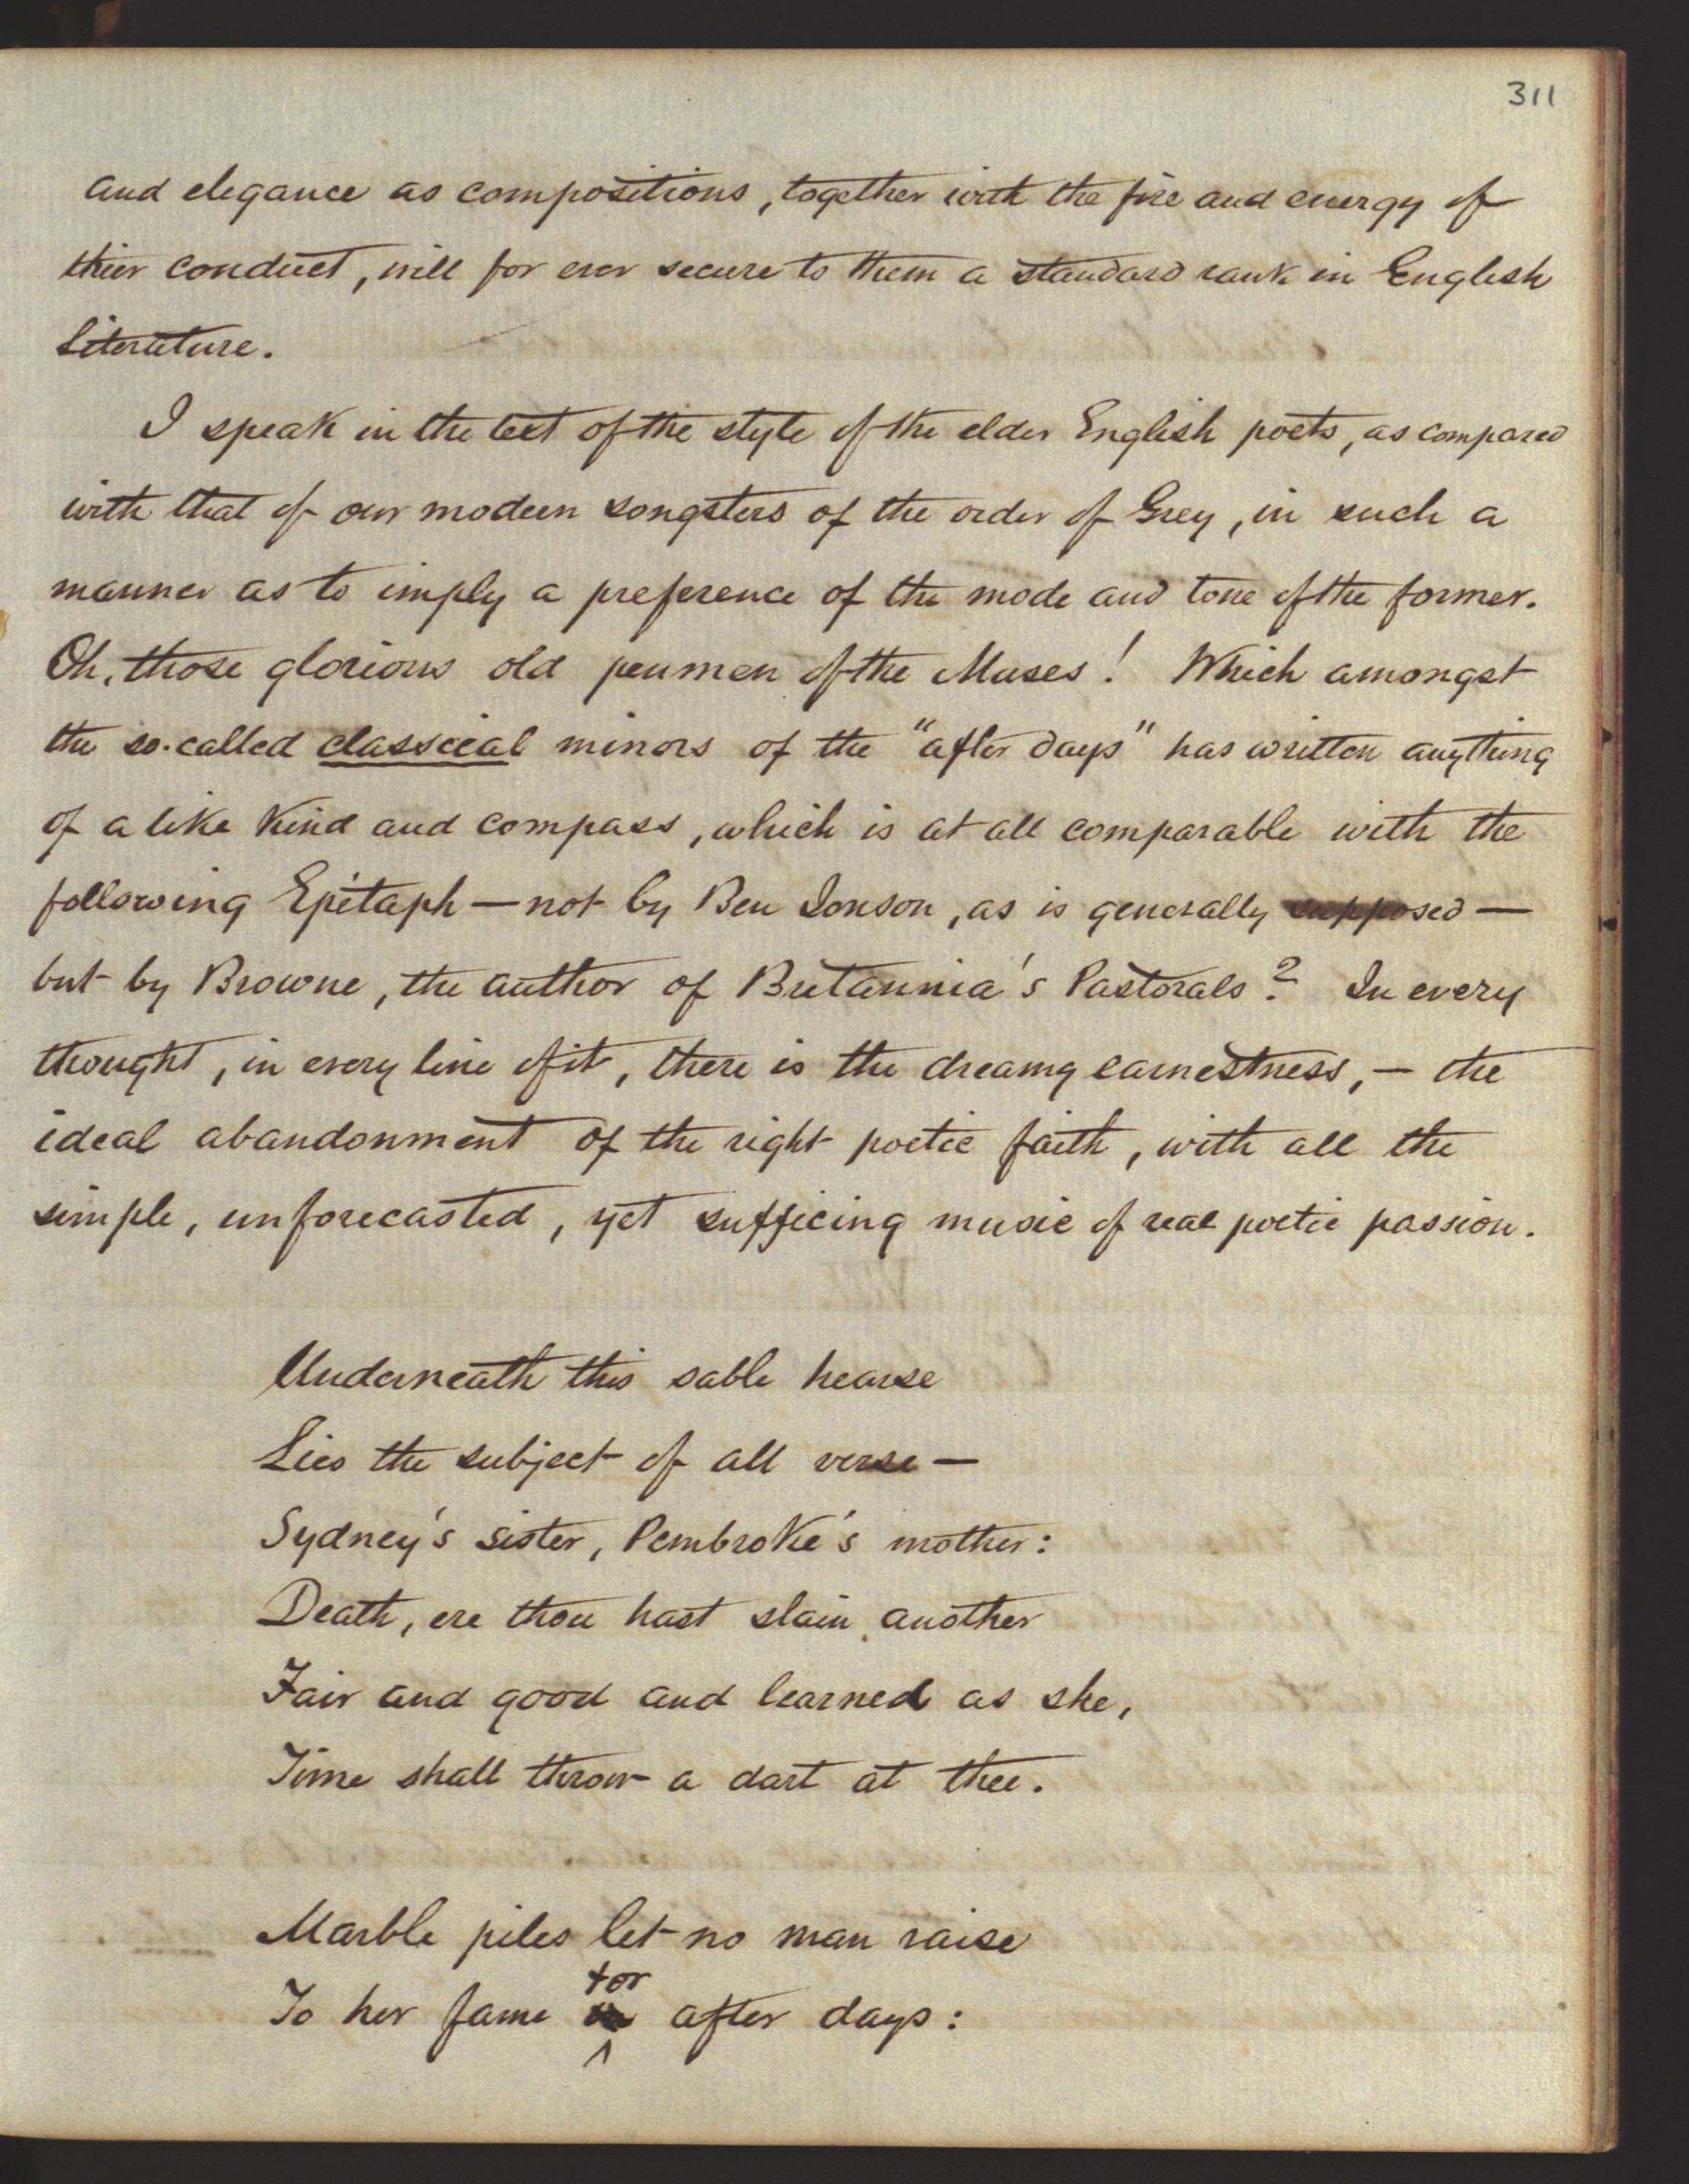 311
and elegance as compositions, together with the fire and energy of
thier conduct, will for ever secure to them a standard rank in English
Literature.
I speak in the text of the style of the elder English poets, as compared
with that of our modern songsters of the order of Grey, in such a
manner as to imply a preference of the mode and tone of the former.
Oh, those glorious old penmen of the Muses! Which amongst
the so-called classical minors of the "after days" has written anything
of a like kind and compass, which is at all comparable with the
following Epitaph — not by Ben Jonson, as is generally supposed —
but by Browne, the author of Britannia's Pastorals? In every
thought, in every line of it, there is the dreamy earnestness, — the
ideal abandonment of the right poetic faith, with all the
simple, unforecasted, yet sufficing music of real poetic passion.
Underneath this sable hearse
Lies the subject of all verse —
Sydney's sister, Pembroke's mother:
Death, ere thou hast slain another
Fair and good and learned as she,
Time shall throw a dart at thee.
Marble piles let no man raise
for
To her fame after days: